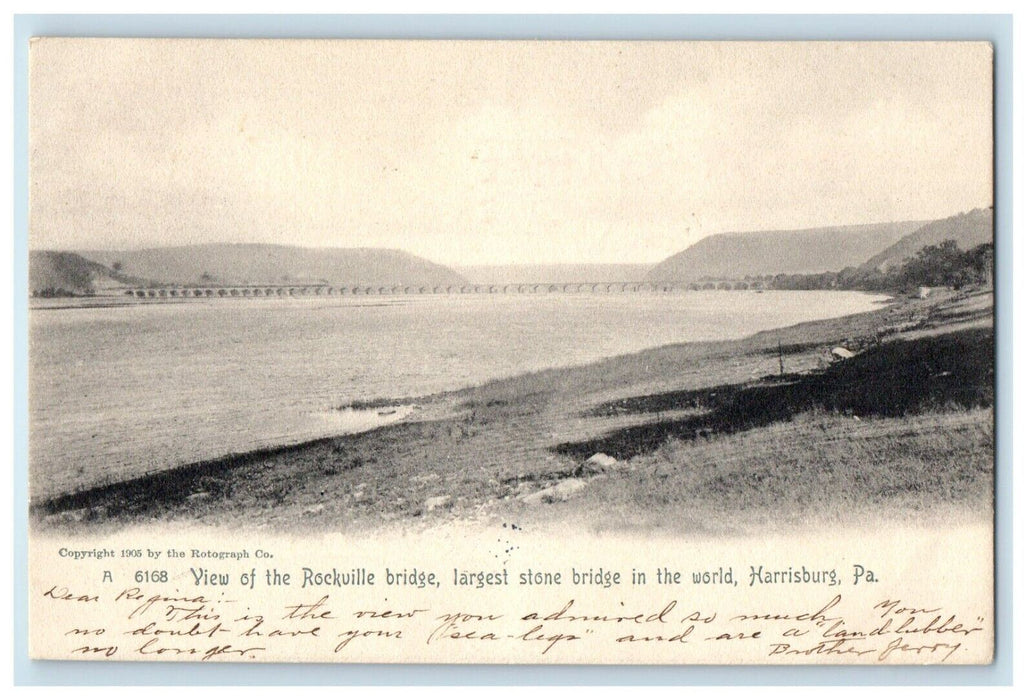 Copyright 1905 by the Rotograph Co.
A 6168 View of the Rockville bridge, largest stone bridge in the world, Harrisburg, Pa.
Dear Regina:-
This is the view you admired so much. You
no doubt have your "sea-legs" and are a "landlubber"
no longer. Brother Jerry.